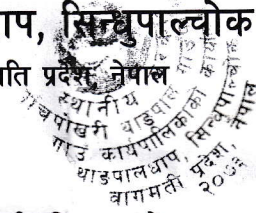 ाप, सिन्धुपाल्चोक
ति प्रदेश, नेपाल
स्थानीय
पाँचपोखरी थाङपाल
गाउँ कार्यपालिकाको
थाङपालधाप, सिन्धुपाल्चोक
बागमती प्रदेश, नेपाल
२०७३